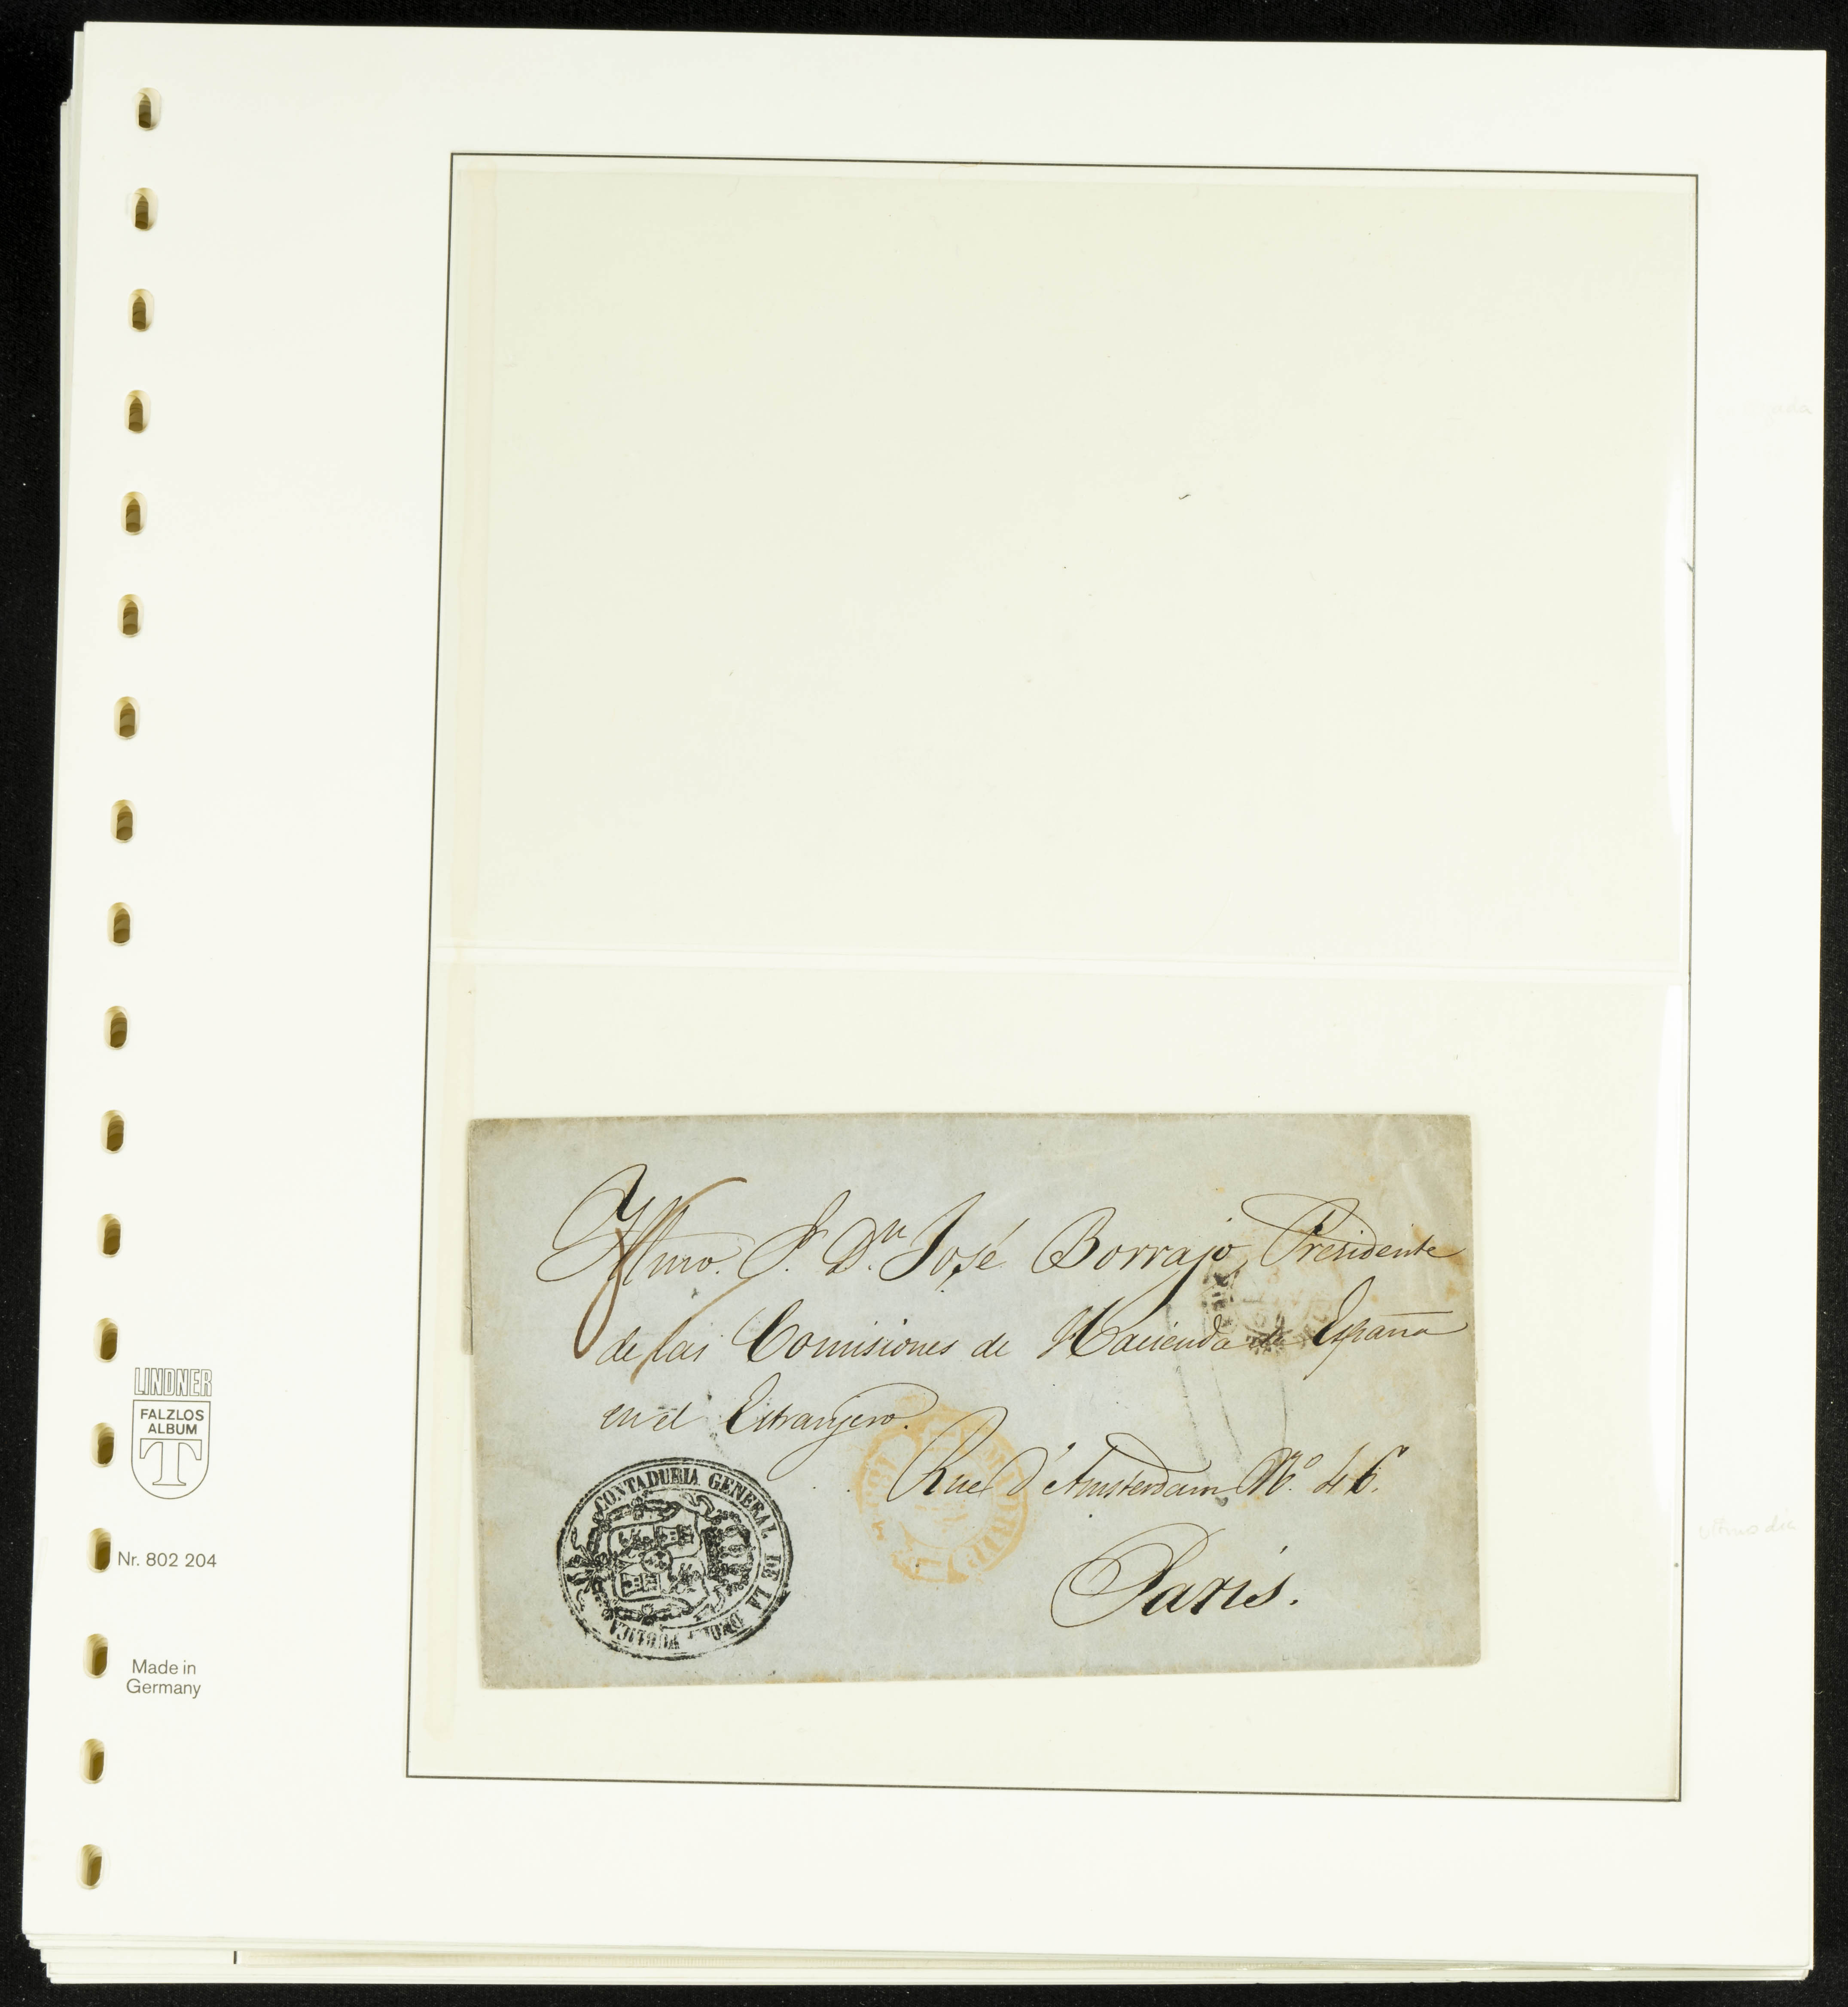 Yltmo. Sr. Dn. José Borrajo, Presidente
de las Comisiones de Hacienda de España
en el Estranjero.
Rue d'Amsterdam No. 46.
Paris.
CONTADURIA GENERAL DE LA DEUDA PUBLICA
LINDNER
FALZLOS
ALBUM
T
Nr. 802 204
Made in
Germany